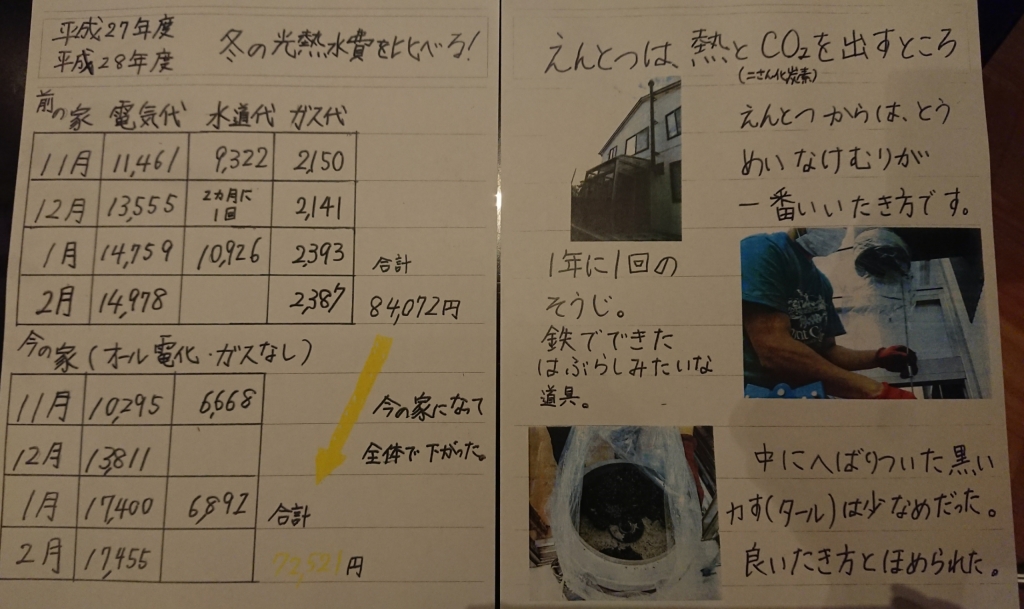 平成27年度
平成28年度
冬の光熱水費を比べる!
前の家 電気代 水道代 ガス代
11月 11,461 9,322 2,150
12月 13,555 2カ月に1回 2,141
1月 14,759 10,926 2,393
2月 14,978 2,387
合計
84,072円
今の家(オール電化・ガスなし)
11月 10,295 6,668
12月 13,811
1月 17,400 6,892
2月 17,455
今の家になって
全体で下がった。
合計
72,521円
えんとつは、熱とCO₂を出すところ
(二さん化炭素)
えんとつからは、とう
めいなけむりが
一番いいたき方です。
1年に1回の
そうじ。
鉄でできた
はぶらしみたいな
道具。
中にへばりついた黒い
カす(タール)は少なめだった。
良いたき方とほめられた。